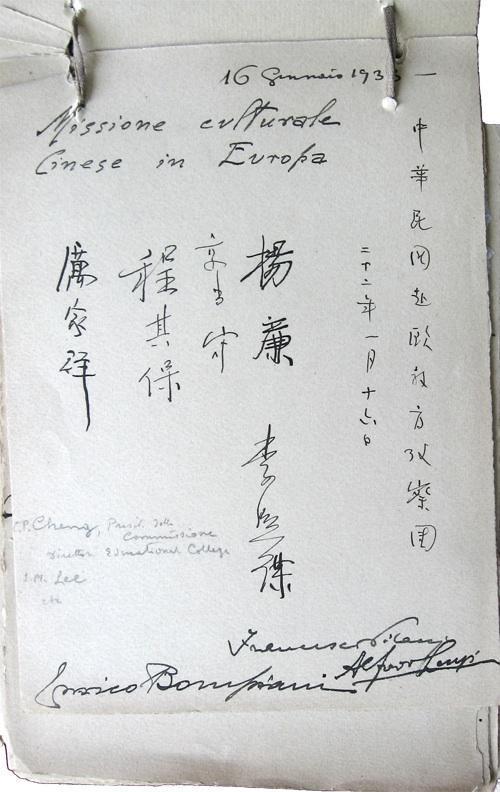 16 Gennaio 193
Missione culturale
Cinese in Europa
中華民國赴歐教育考察團
二十二年一月十六日
楊廉
李熙謀
郭有守
程其保
厲家祥
C.P. Cheng, Presid. della
Commissione
Director Educational College
Lee
etc
Francesco
Enrico Bompiani